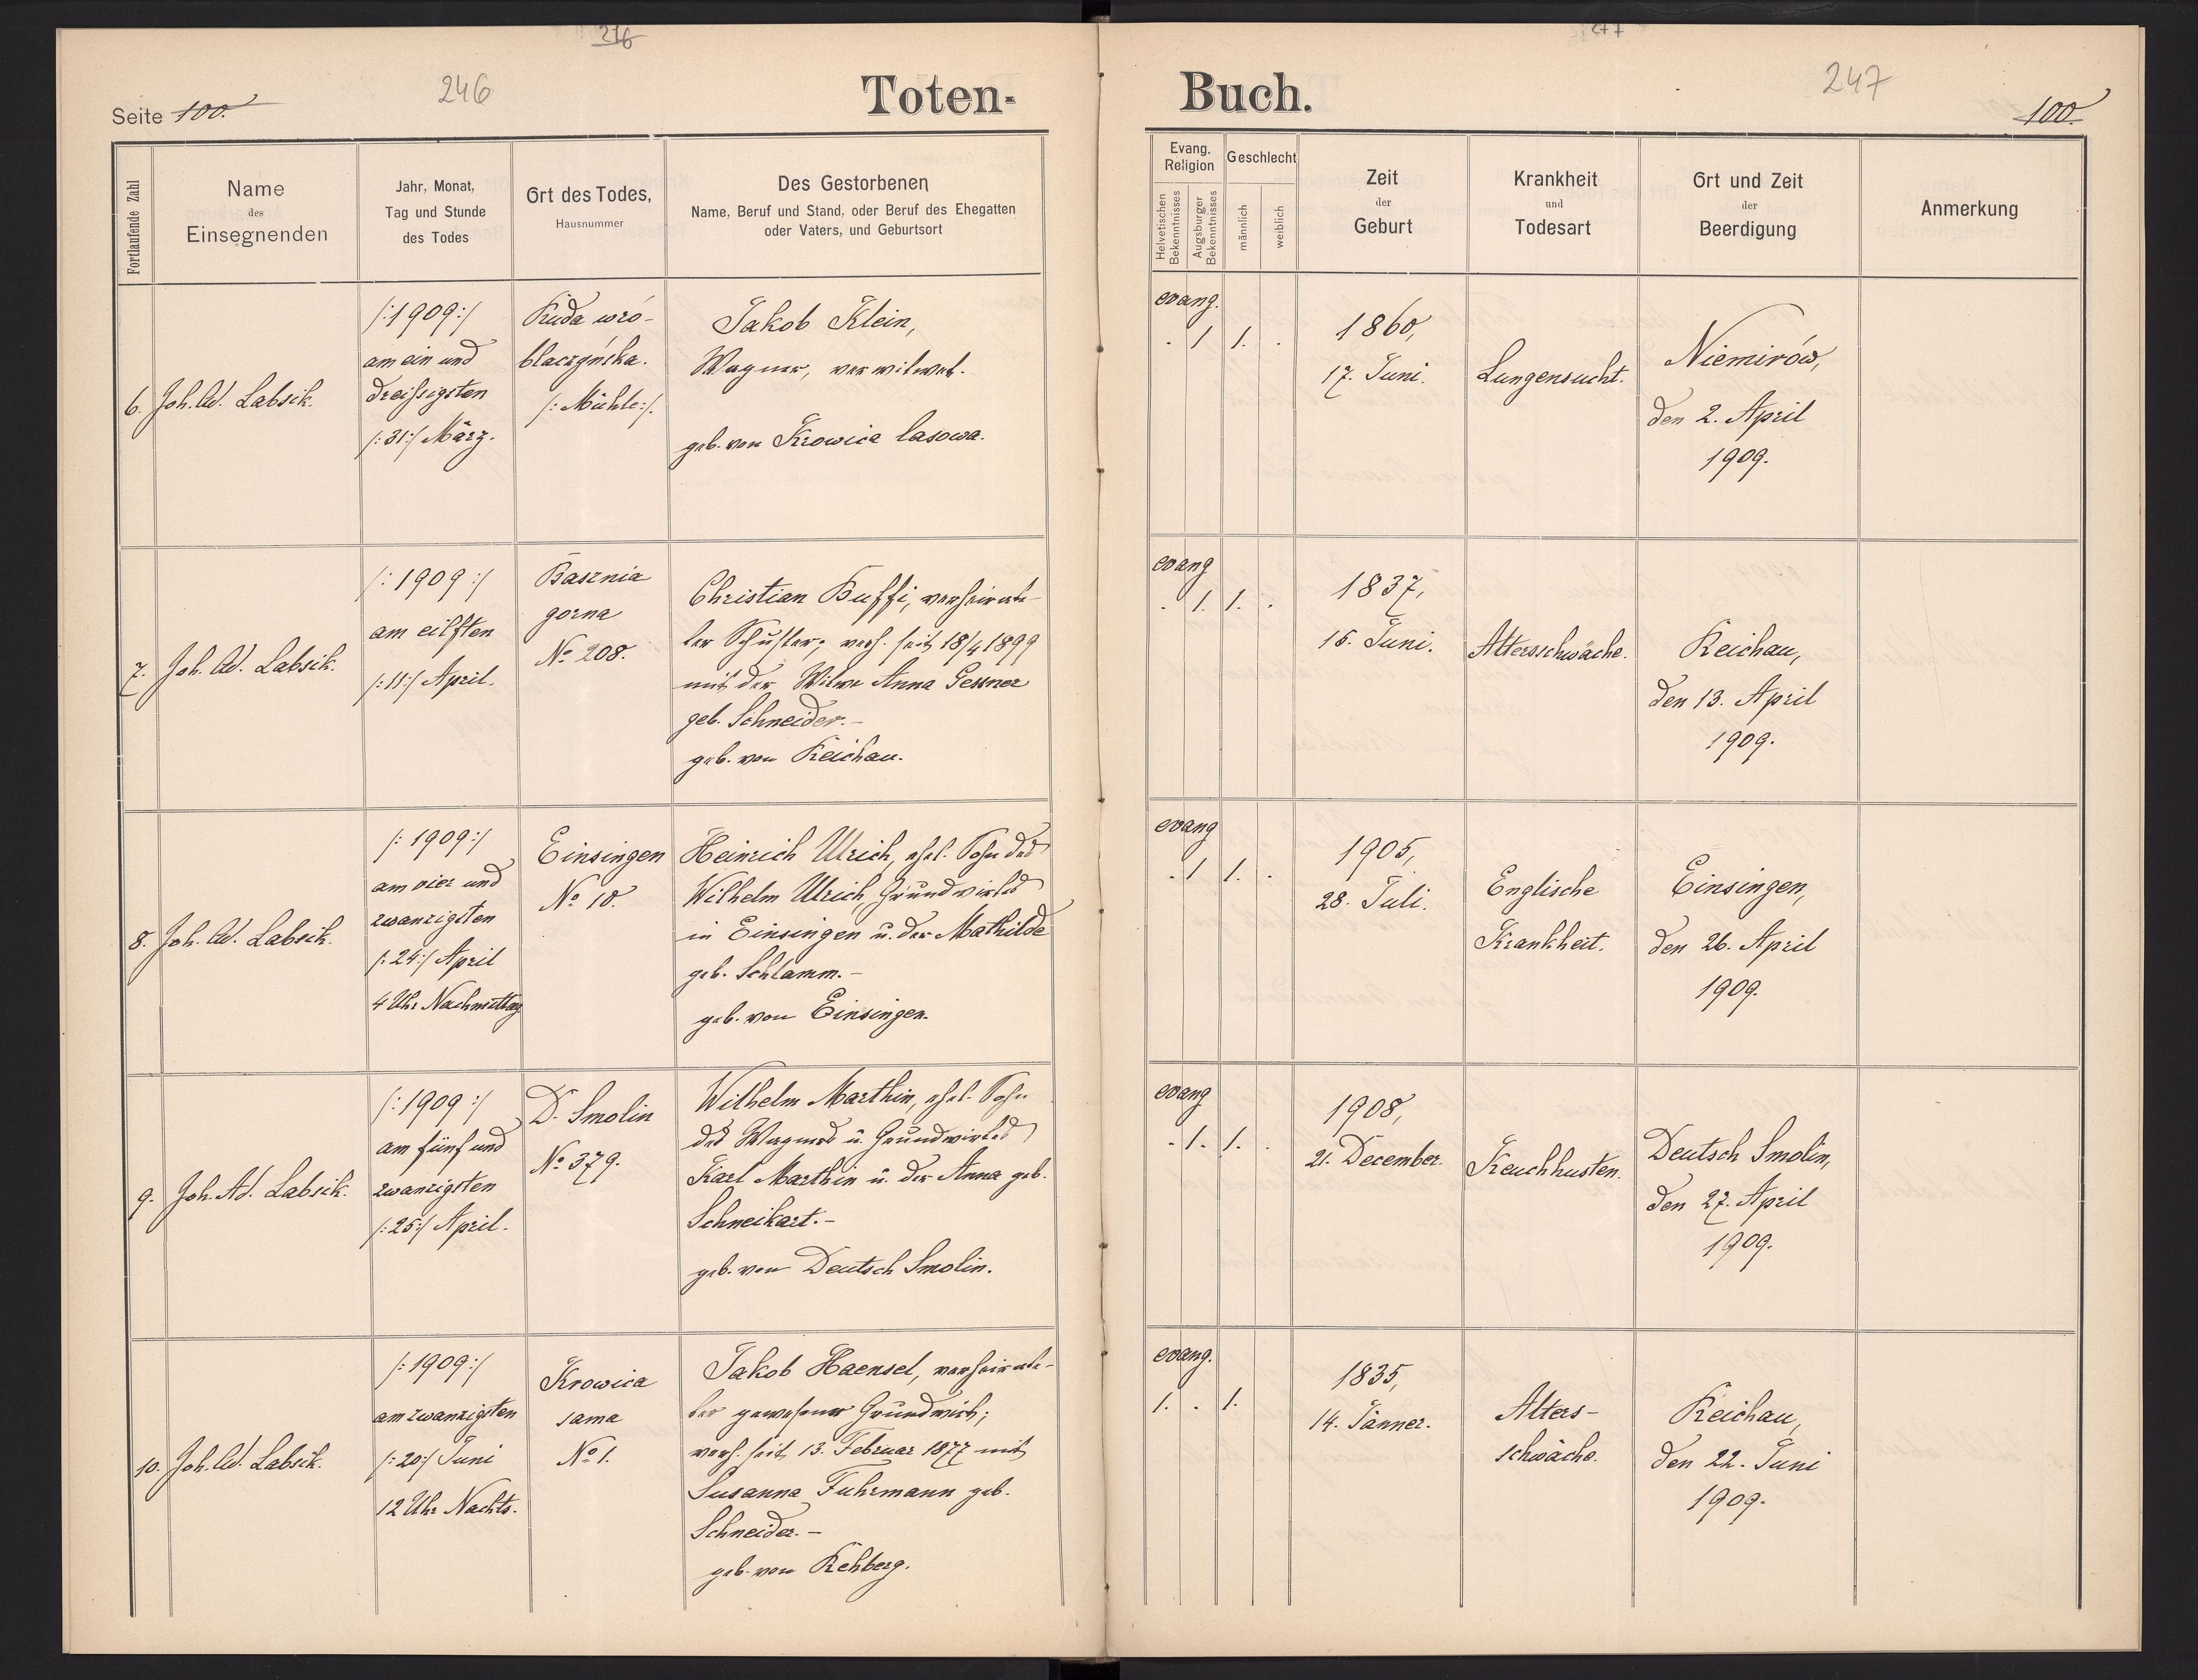 216
246
Seite 100.
Toten-
Fortlaufende Zahl
Name
des
Einsegnenden
Jahr, Monat,
Tag und Stunde
des Todes
Ort des Todes,
Hausnummer
Des Gestorbenen
Name, Beruf und Stand, oder Beruf des Ehegatten
oder Vaters, und Geburtsort
6. Joh. Ad. Labsik.
/:1909:/
am ein und
dreißigsten
/:31:/ März.
Ruda wró-
blaczyńska.
/:Mühle:/.
Jakob Klein,
Wagner, verwitwet.
geb. von Krowica lasowa.
7. Joh. Ad. Labsik.
/:1909:/
am eilften
/:11:/ April.
Basznia
gorna
No 208.
Christian Buffi, verheirate-
ter Schuster; verh. seit 18/4 1899
mit der Witwe Anna Gessner
geb. Schneider.-
geb. von Reichau.
8. Joh. Ad. Labsik.
/:1909:/
am vier und
zwanzigsten
/:24:/ April
4 Uhr Nachmittag
Einsingen
No 10.
Heinrich Ulrich, ehel. Sohn des
Wilhelm Ulrich, Grundwirtes
in Einsingen u. der Mathilde
geb. Schlamm.-
geb. von Einsingen.
9. Joh. Ad. Labsik.
/:1909:/
am fünf und
zwanzigsten
/:25:/ April.
D. Smolin
No 379.
Wilhelm Marthin, ehel. Sohn
des Wagners u. Grundwirtes
Karl Marthin u. der Anna geb.
Schneikart.-
geb. von Deutsch Smolin.
10. Joh. Ad. Labsik.
/:1909:/
am zwanzigsten
/:20:/ Juni
12 Uhr Nachts.
Krowica
sama
No 1.
Jakob Haensel, verheirate-
ter gewesener Grundwirt;
verh. seit 13. Februar 1877 mit
Susanna Fuhrmann geb.
Schneider.-
geb. von Rehberg.
277
Buch.
247
100.
Evang.
Religion
Helvetischen
Bekenntnisses
Augsburger
Bekenntnisses
Geschlecht
männlich
weiblich
Zeit
der
Geburt
Krankheit
und
Todesart
Ort und Zeit
der
Beerdigung
Anmerkung
evang.
. 1 1. .
1860,
17. Juni.
Lungensucht.
Niemirów,
den 2. April
1909.
evang
. 1. 1. .
1837,
15. Juni.
Altersschwäche.
Reichau,
den 13. April
1909.
evang
. 1 1. .
1905,
28. Juli.
Englische
Krankheit.
Einsingen,
den 26. April
1909.
evang
. 1. 1. .
1908,
21. December.
Keuchhusten.
Deutsch Smolin,
den 27. April
1909.
evang.
1. . 1.
1835,
14. Jänner.
Alters-
schwäche.
Reichau,
den 22. Juni
1909.